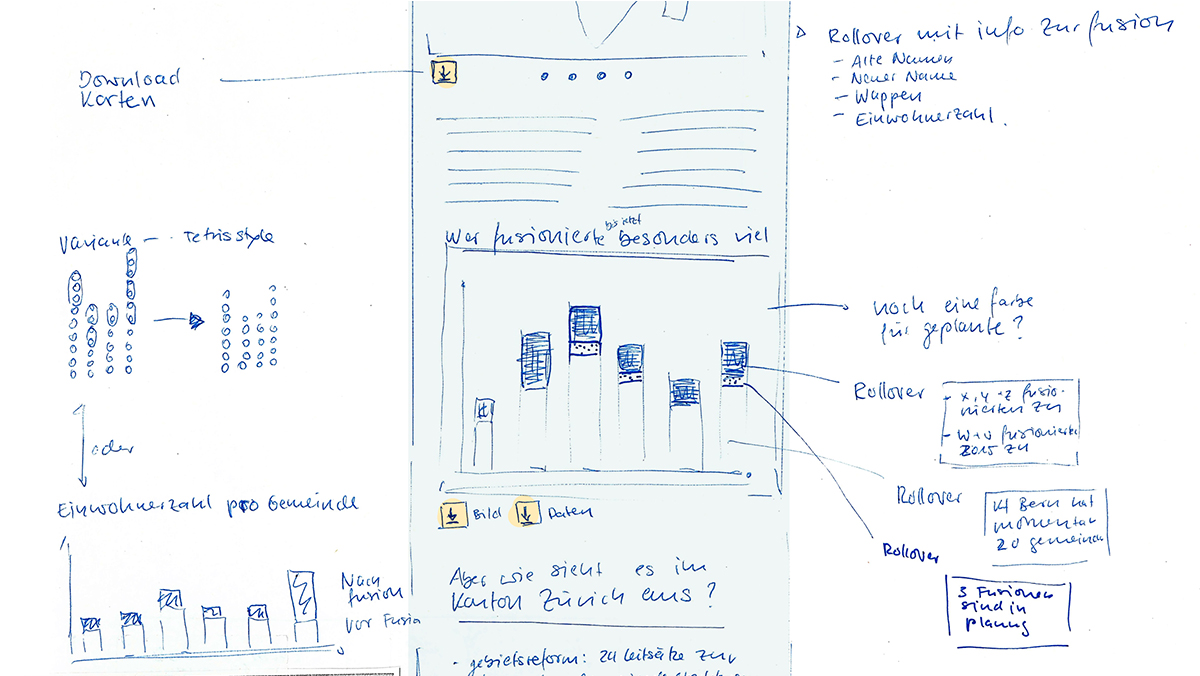 Download
Karten
Rollover mit info zur fusion
- Alte Namen
- Neuer Name
- Wappen
- Einwohnerzahl.
Variante - Tetrisstyle
Wer fusionierte bis jetzt besonders viel
noch eine farbe
für geplante?
Rollover
- x, y + z fusio-
nierten zu
- W + v fusionierte
2015 zu
oder
Einwohnerzahl pro Gemeinde
Rollover
Kt Bern hat
momentan
20 gemeinden
Bild
Daten
Rollover
3 Fusionen
sind in
planung
Aber wie sieht es im
Kanton Zürich aus?
Nach
fusion
Vor Fusion
- gebietsreform: 24 leitsätze zur